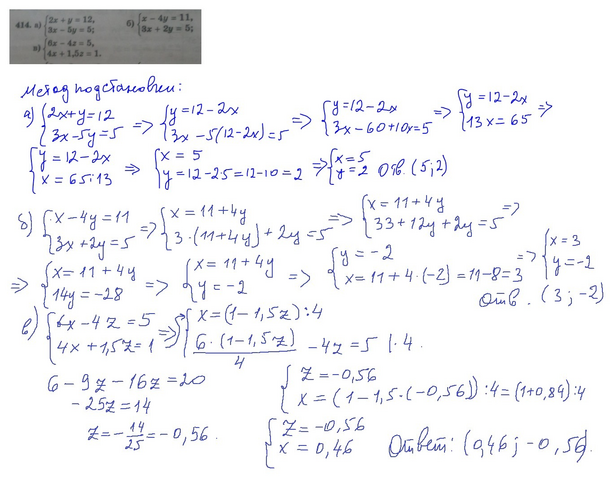 414. а) {2x + y = 12, 3x − 5y = 5; б) {x − 4y = 11, 3x + 2y = 5;
в) {6x − 4z = 5, 4x + 1,5z = 1.
Метод подстановки:
а) {2x+y=12 3x−5y=5 => {y=12−2x 3x−5(12−2x)=5 => {y=12−2x 3x−60+10x=5 => {y=12−2x 13x=65 =>
{y=12−2x x=65:13 => {x=5 y=12−2·5=12−10=2 => {x=5 y=2 Отв. (5;2)
б) {x−4y=11 3x+2y=5 => {x=11+4y 3·(11+4y)+2y=5 => {x=11+4y 33+12y+2y=5 =>
=> {x=11+4y 14y=−28 => {x=11+4y y=−2 => {y=−2 x=11+4·(−2)=11−8=3 => {x=3 y=−2
Отв. (3;−2)
в) {6x−4z=5 4x+1,5z=1 => {x=(1−1,5z):4 6·(1−1,5z)/4 −4z=5 |·4
6−9z−16z=20
−25z=14
z=−14/25=−0,56.
{z=−0,56 x=(1−1,5·(−0,56)):4=(1+0,84):4
{z=−0,56 x=0,46 Ответ: (0,46; −0,56).